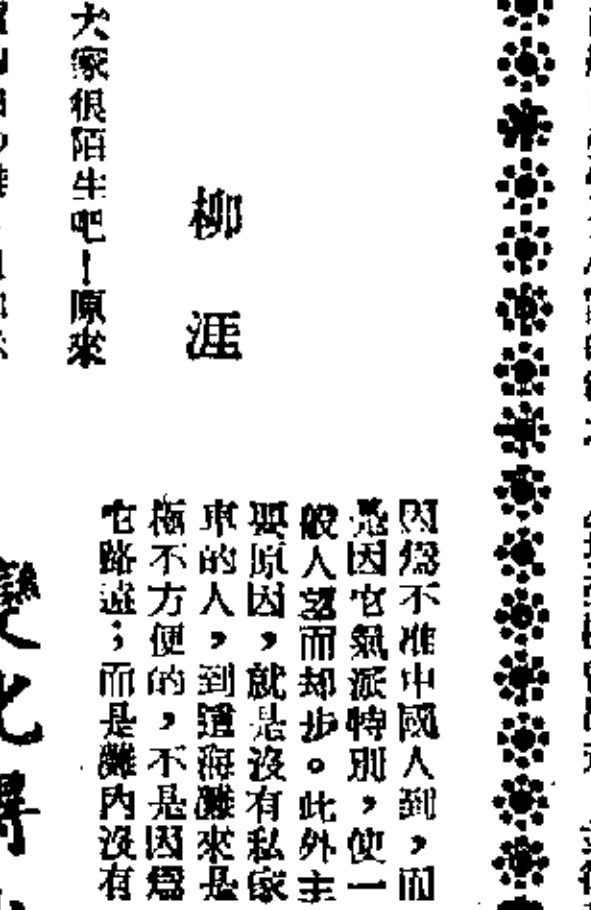 因爲不准中國人到，而
是因它氣派特別，使一
般人望而却步。此外主
要原因，就是沒有私家
車的人，到這海灘來是
極不方便的，不是因爲
它路遠；而是灘內沒有
柳涯
大家很陌生吧！原來
變化